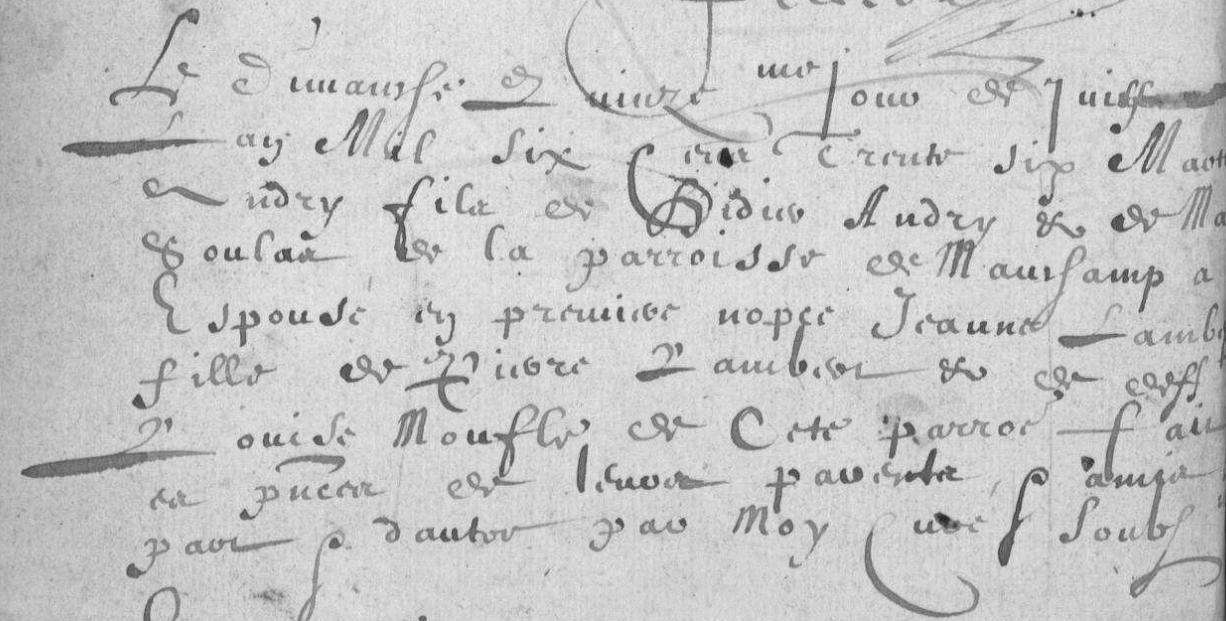 Le Dimanche me jour de Juill
Lan Mil six Cens Trente six Mart
Andry fils de Gidie Andry & de Ma
Soulas de la parroisse de Mauchamp a
Espousé en premiere nopce Jeanne Lamber
fille de Pierre Lambert & de deff
Louise Moufle de Cete parroe fait
es pnces de leurs parents amis
part dautre par Moy Cure soubs